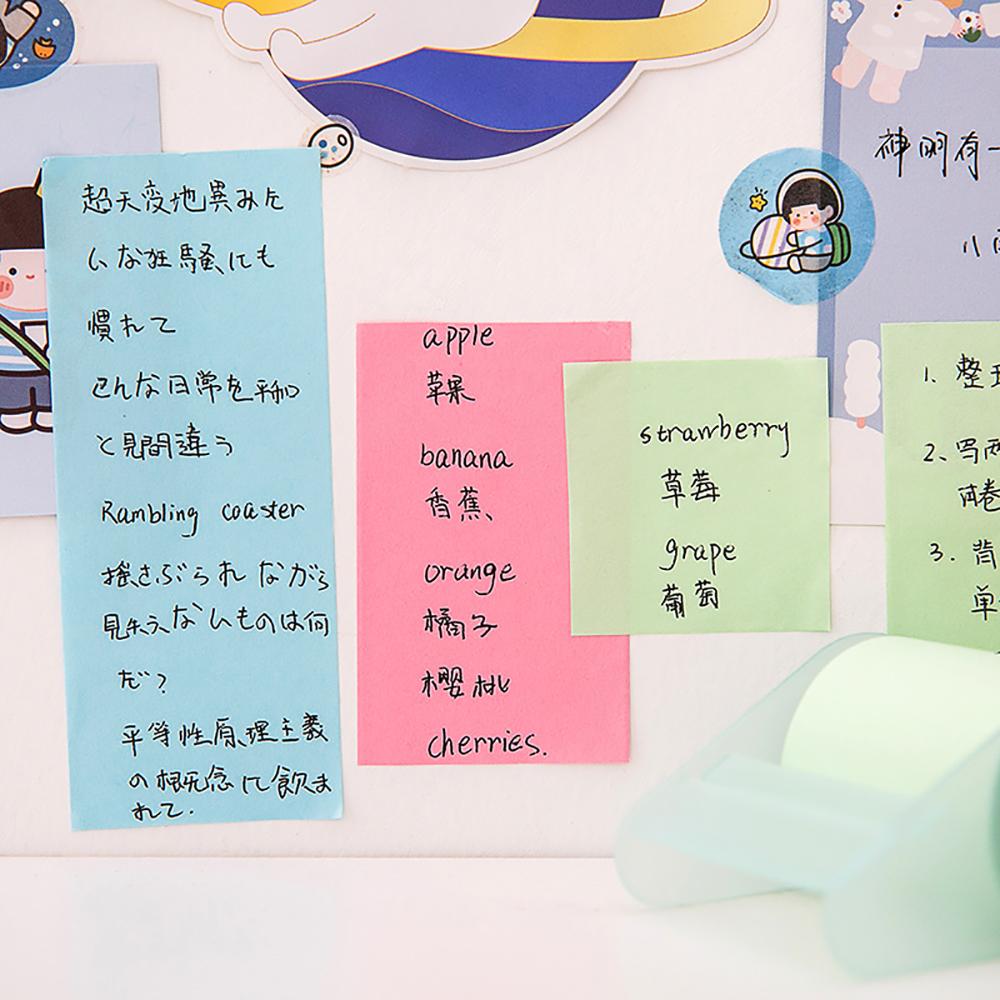 超天変地異みた
いな狂騒にも
慣れて
こんな日常を平和
と見間違う
Rambling coaster
揺さぶられながら
見失えないものは何
だ?
平等性原理主義
の概念に飲ま
れて.
apple
苹果
banana
香蕉、
orange
橘子
樱桃
cherries.
strawberry
草莓
grape
葡萄
神明有一
八
1. 整
2、写两
3. 背
单